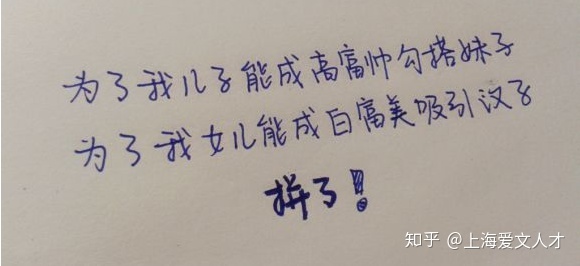 为了我儿子能成高富帅勾搭妹子
为了我女儿能成白富美吸引汉子
拼了!
知乎 @上海爱文人才